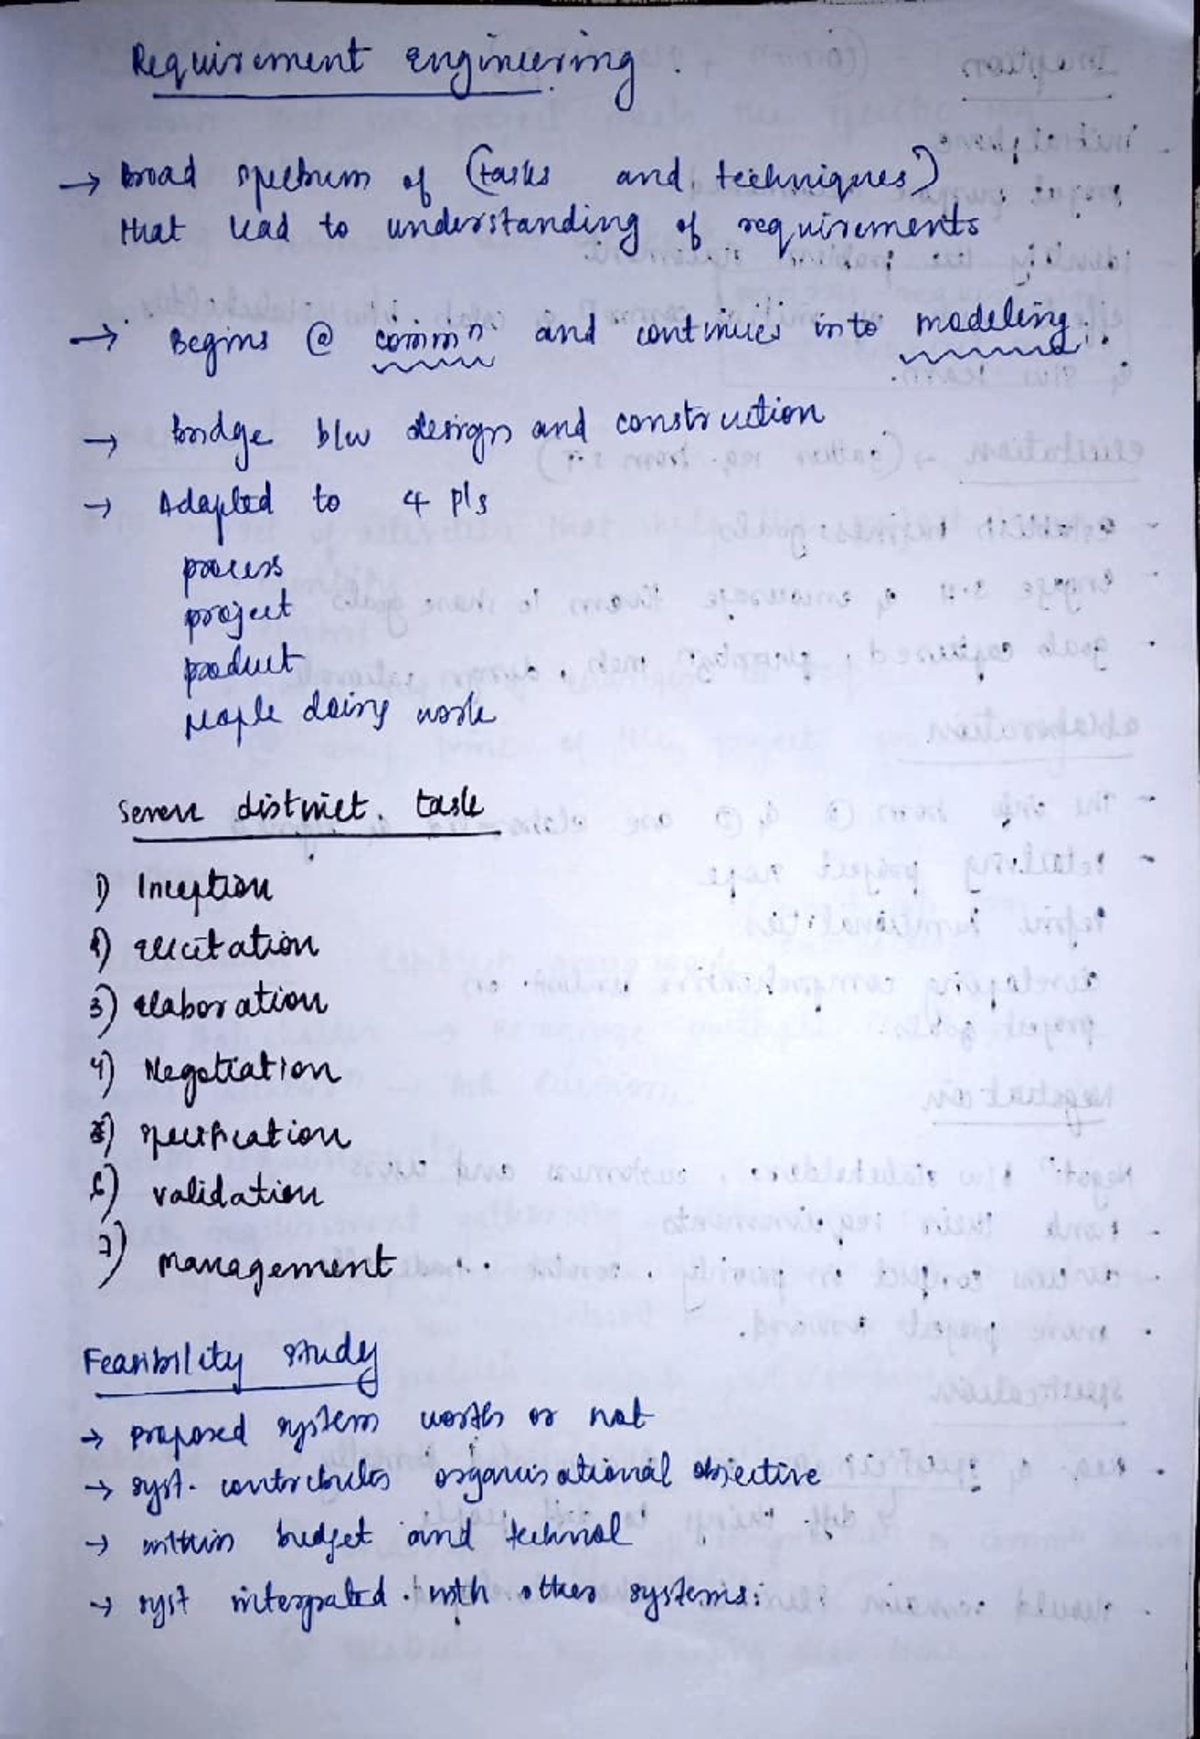 Requirement Engineering.
→ broad spectrum of (tasks and techniques)
that lead to understanding of requirements
→ Begins @ commⁿ and continues into modeling.
→ bridge b/w design and construction
→ Adapted to 4 P's
process
project
product
people doing work
Seven distinct task
1) Inception
2) Elicitation
3) Elaboration
4) Negotiation
5) specification
6) validation
7) Management
Feasibility study
→ proposed system worth or not
→ syst. contributes organisational objective
→ within budget and technol
→ syst intergrated with other systems.